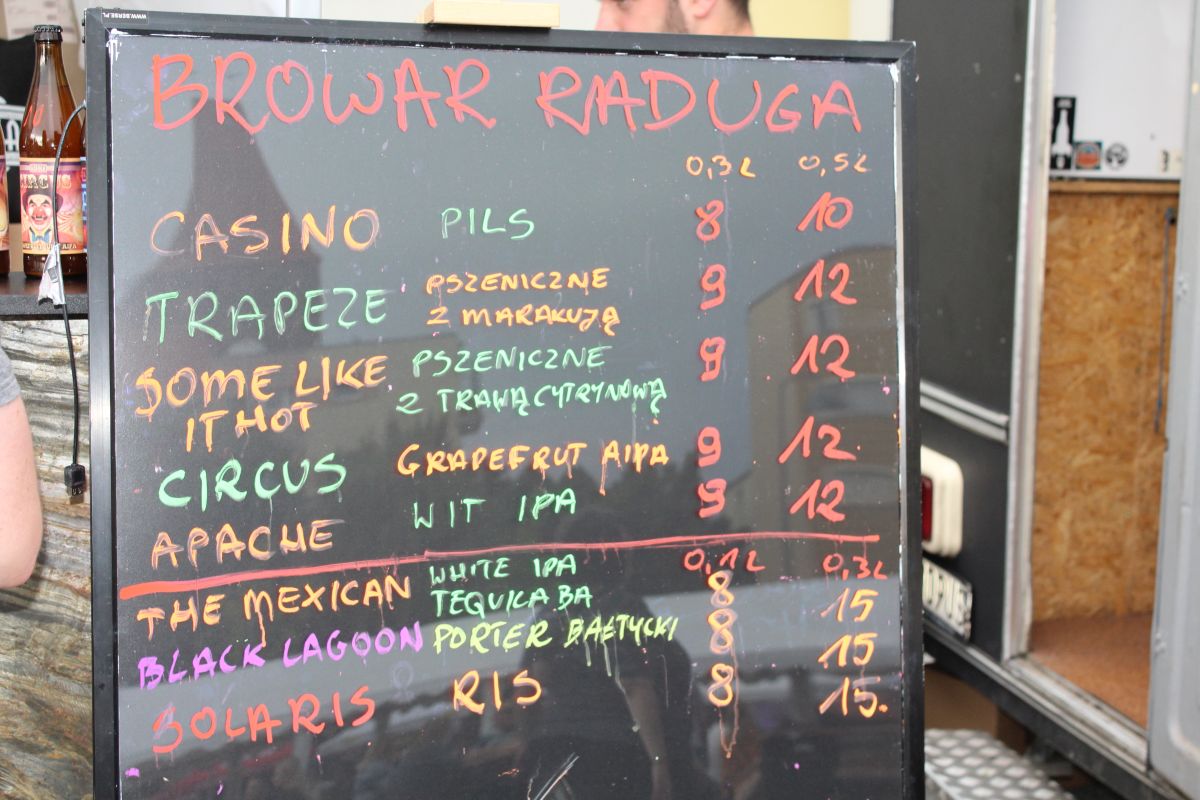 WWW.DERSE.PL
BROWAR RADUGA
0,3L 0,5L
CASINO PILS 8 10
TRAPEZE PSZENICZNE 9 12
Z MARAKUJĄ
SOME LIKE PSZENICZNE 9 12
IT HOT Z TRAWĄ CYTRYNOWĄ
CIRCUS GRAPEFRUT AIPA 9 12.
APACHE WIT IPA 9 12
0,1L 0,3L
THE MEXICAN WHITE IPA 8 15
TEQUILA BA
BLACK LAGOON PORTER BAŁTYCKI 8 15
SOLARIS RIS 8 15.
CIRCUS